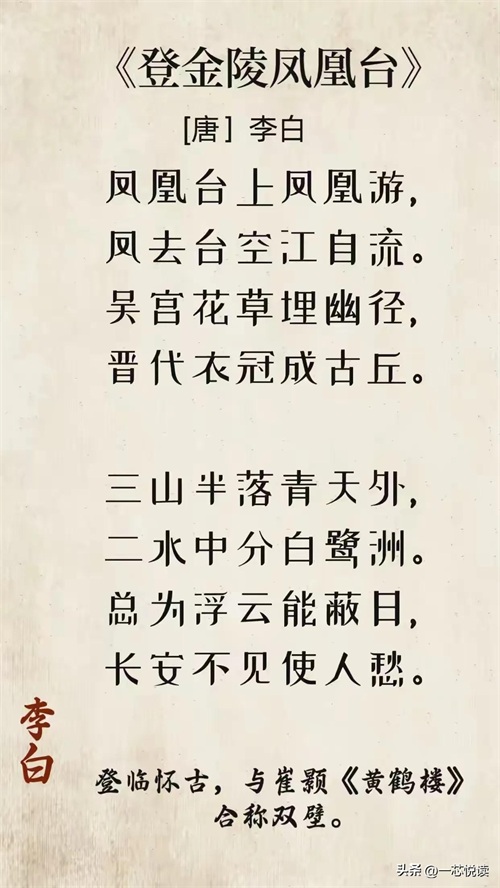 《登金陵凤凰台》
[唐] 李白
凤凰台上凤凰游，
凤去台空江自流。
吴宫花草埋幽径，
晋代衣冠成古丘。
三山半落青天外，
二水中分白鹭洲。
总为浮云能蔽日，
长安不见使人愁。
李白
登临怀古，与崔颢《黄鹤楼》
合称双璧。
头条 @一芯悦读